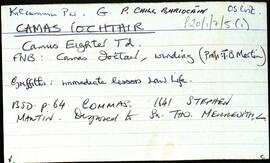 Kilcommon Par. G P. CHILL OS list.
CAMAS ÍOCHTAIR P20/1/7/5(1)
Camus Eighter Td.
FNB: Camas Iochtair, winding (Prof. T.B. Martin)
Griffiths: immediate lessor Law Life.
BSD p. 64 COMMAS. 1641 STEPHEN
MARTIN. Disposed to Sr. Tho. MEREDYTH,